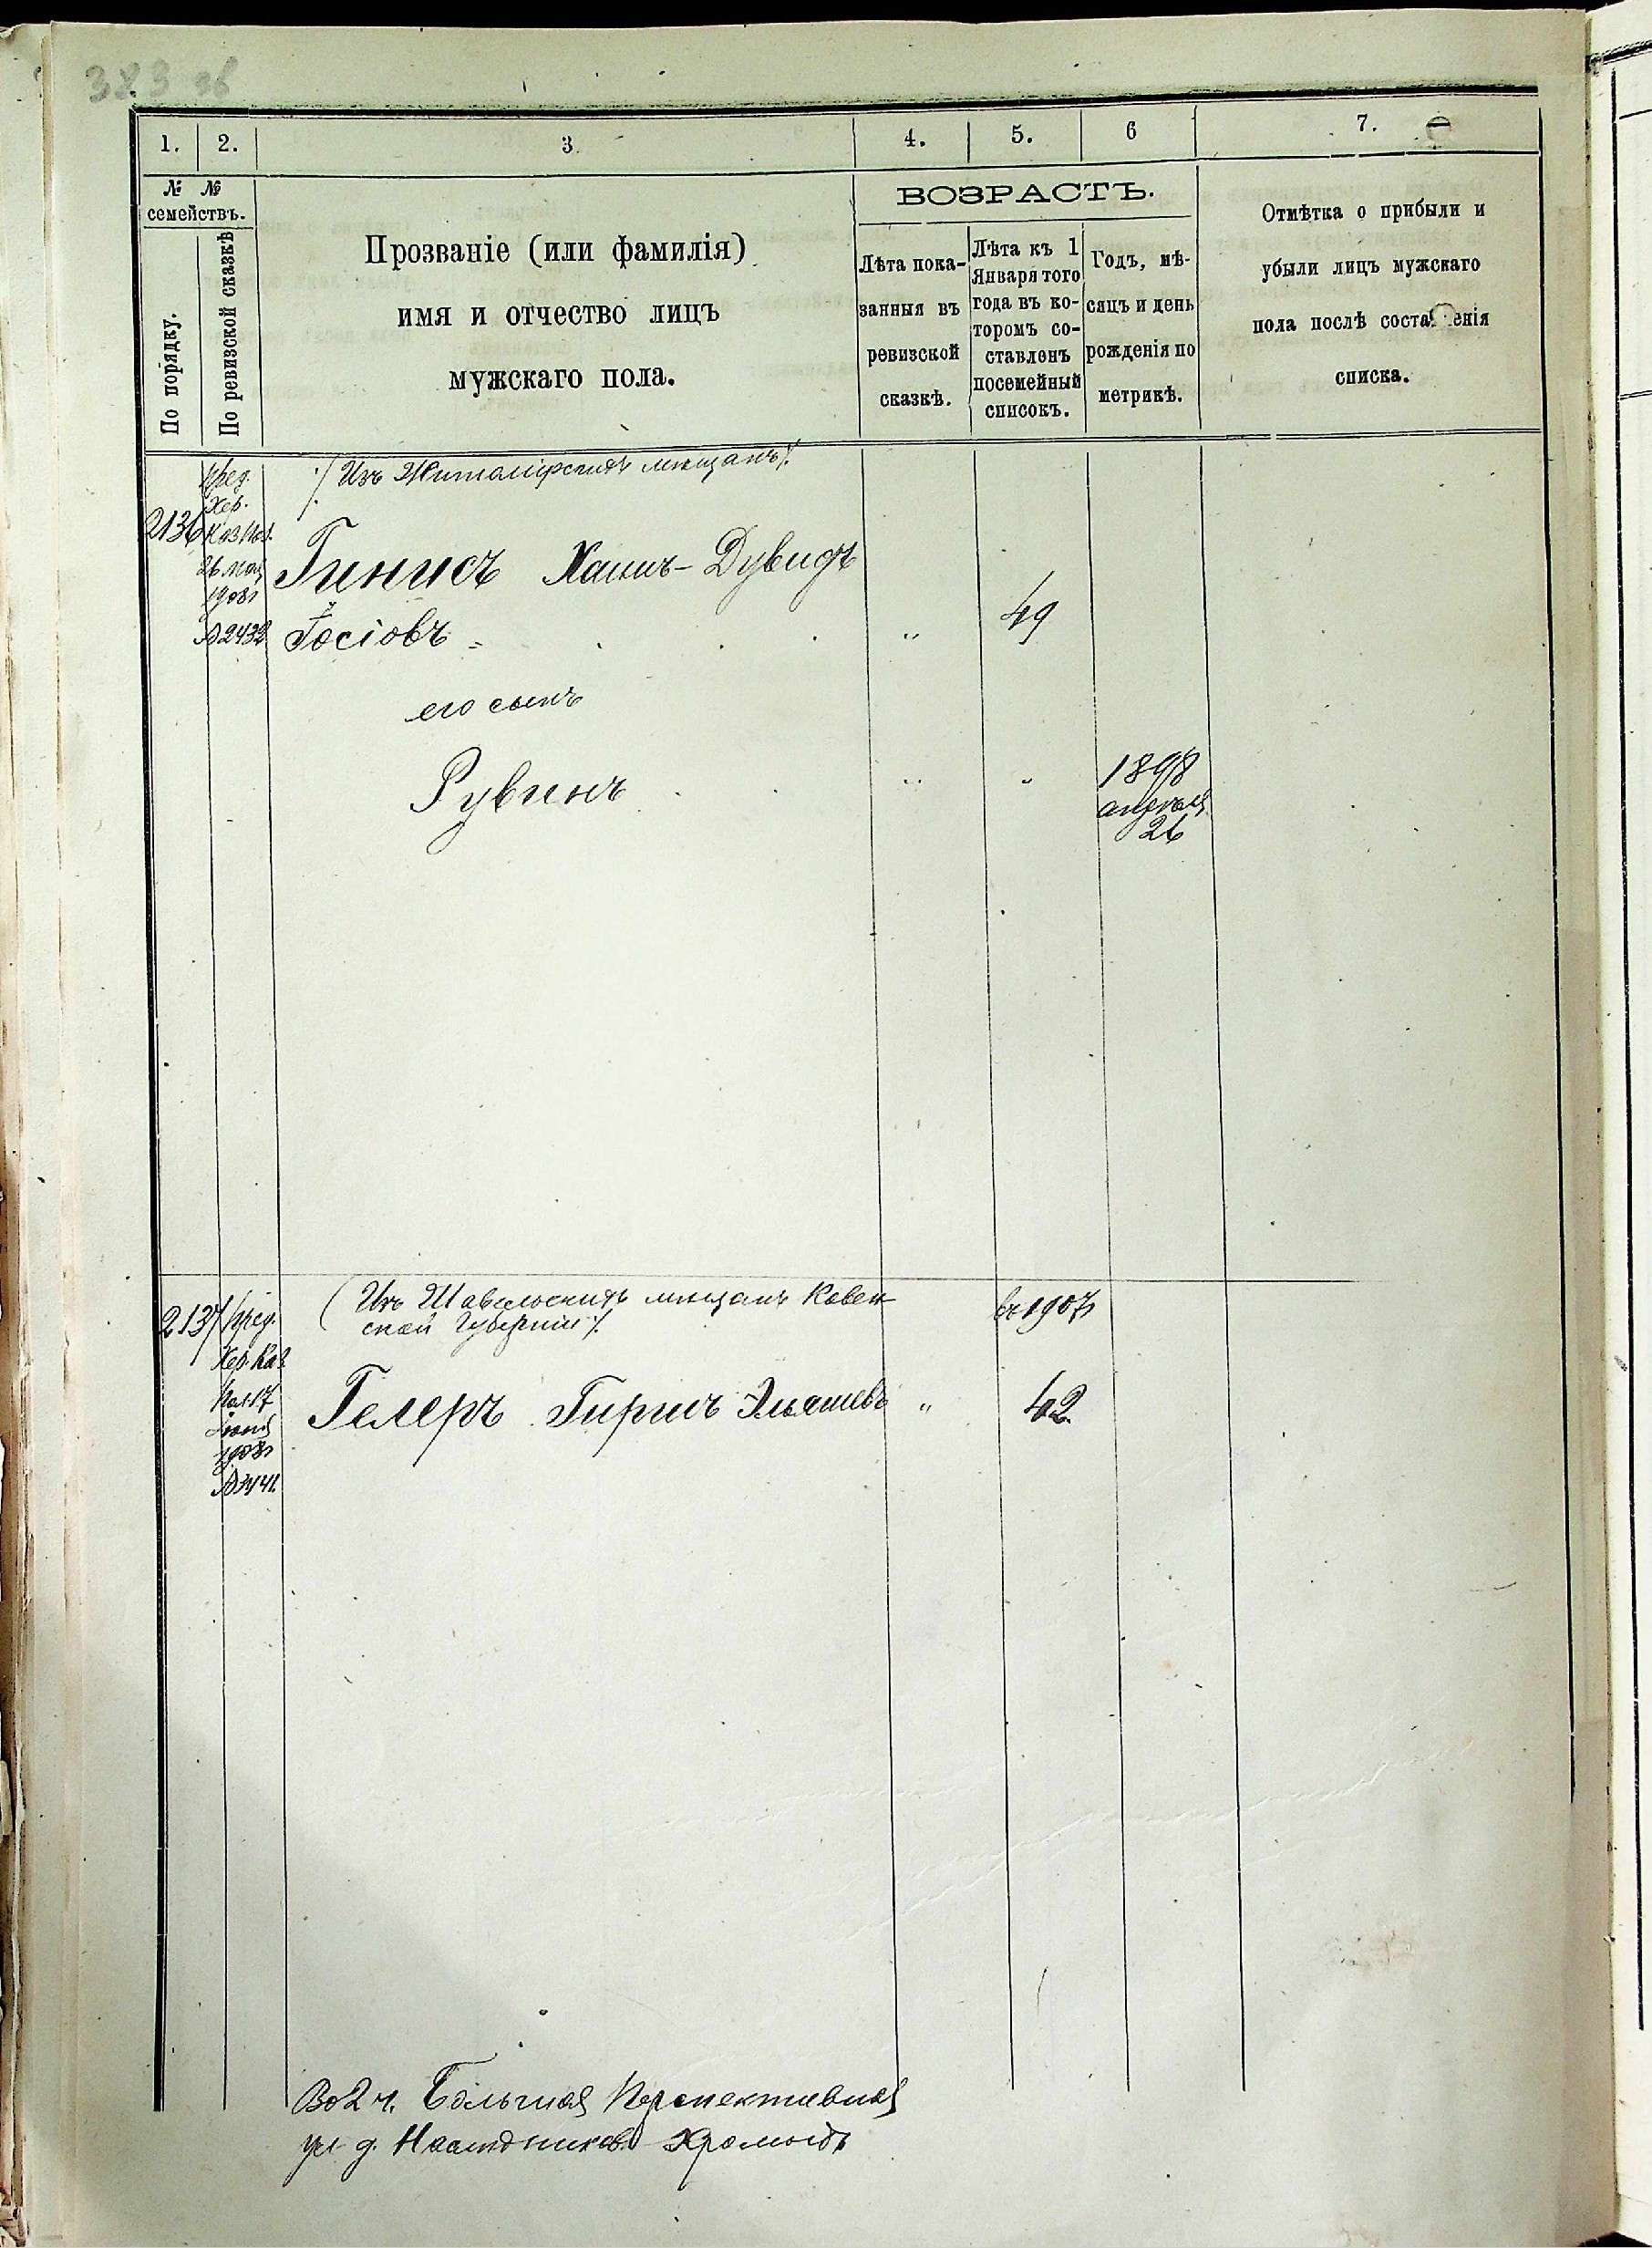 383 об
1. 2. 3. 4. 5. 6 7.
№ №
семействъ.
По порядку.
По ревизской сказкѣ
Прозваніе (или фамилія)
имя и отчество лицъ
мужскаго пола.
ВОЗРАСТЪ.
Лѣта пока-
занныя въ
ревизской
сказкѣ.
Лѣта къ 1
Января того
года въ ко-
торомъ со-
ставленъ
посемейный
списокъ.
Годъ, мѣ-
сяцъ и день
рожденія по
метрикѣ.
Отмѣтка о прибыли и
убыли лицъ мужскаго
пола послѣ составленія
списка.
2136
пред.
Хер.
Каз Пал.
26 мая
1908г
№2432
(Изъ Житомірскихъ мѣщанъ)
Гинисъ Хаимъ-Дувидъ
Іосіовъ " 49
его сынъ
Рувинъ " " 1898
апрѣля
26
2137
пред.
Хер. Каз
Пал 17
іюня
1908г
(Изъ Шавельскихъ мѣщанъ Ковен
ской Губерніи).
въ 1907г
Гелеръ Гиршъ Эльяшевъ " 42
Во 2 ч. Большая Перспективная
ул д. Наслѣдниковъ